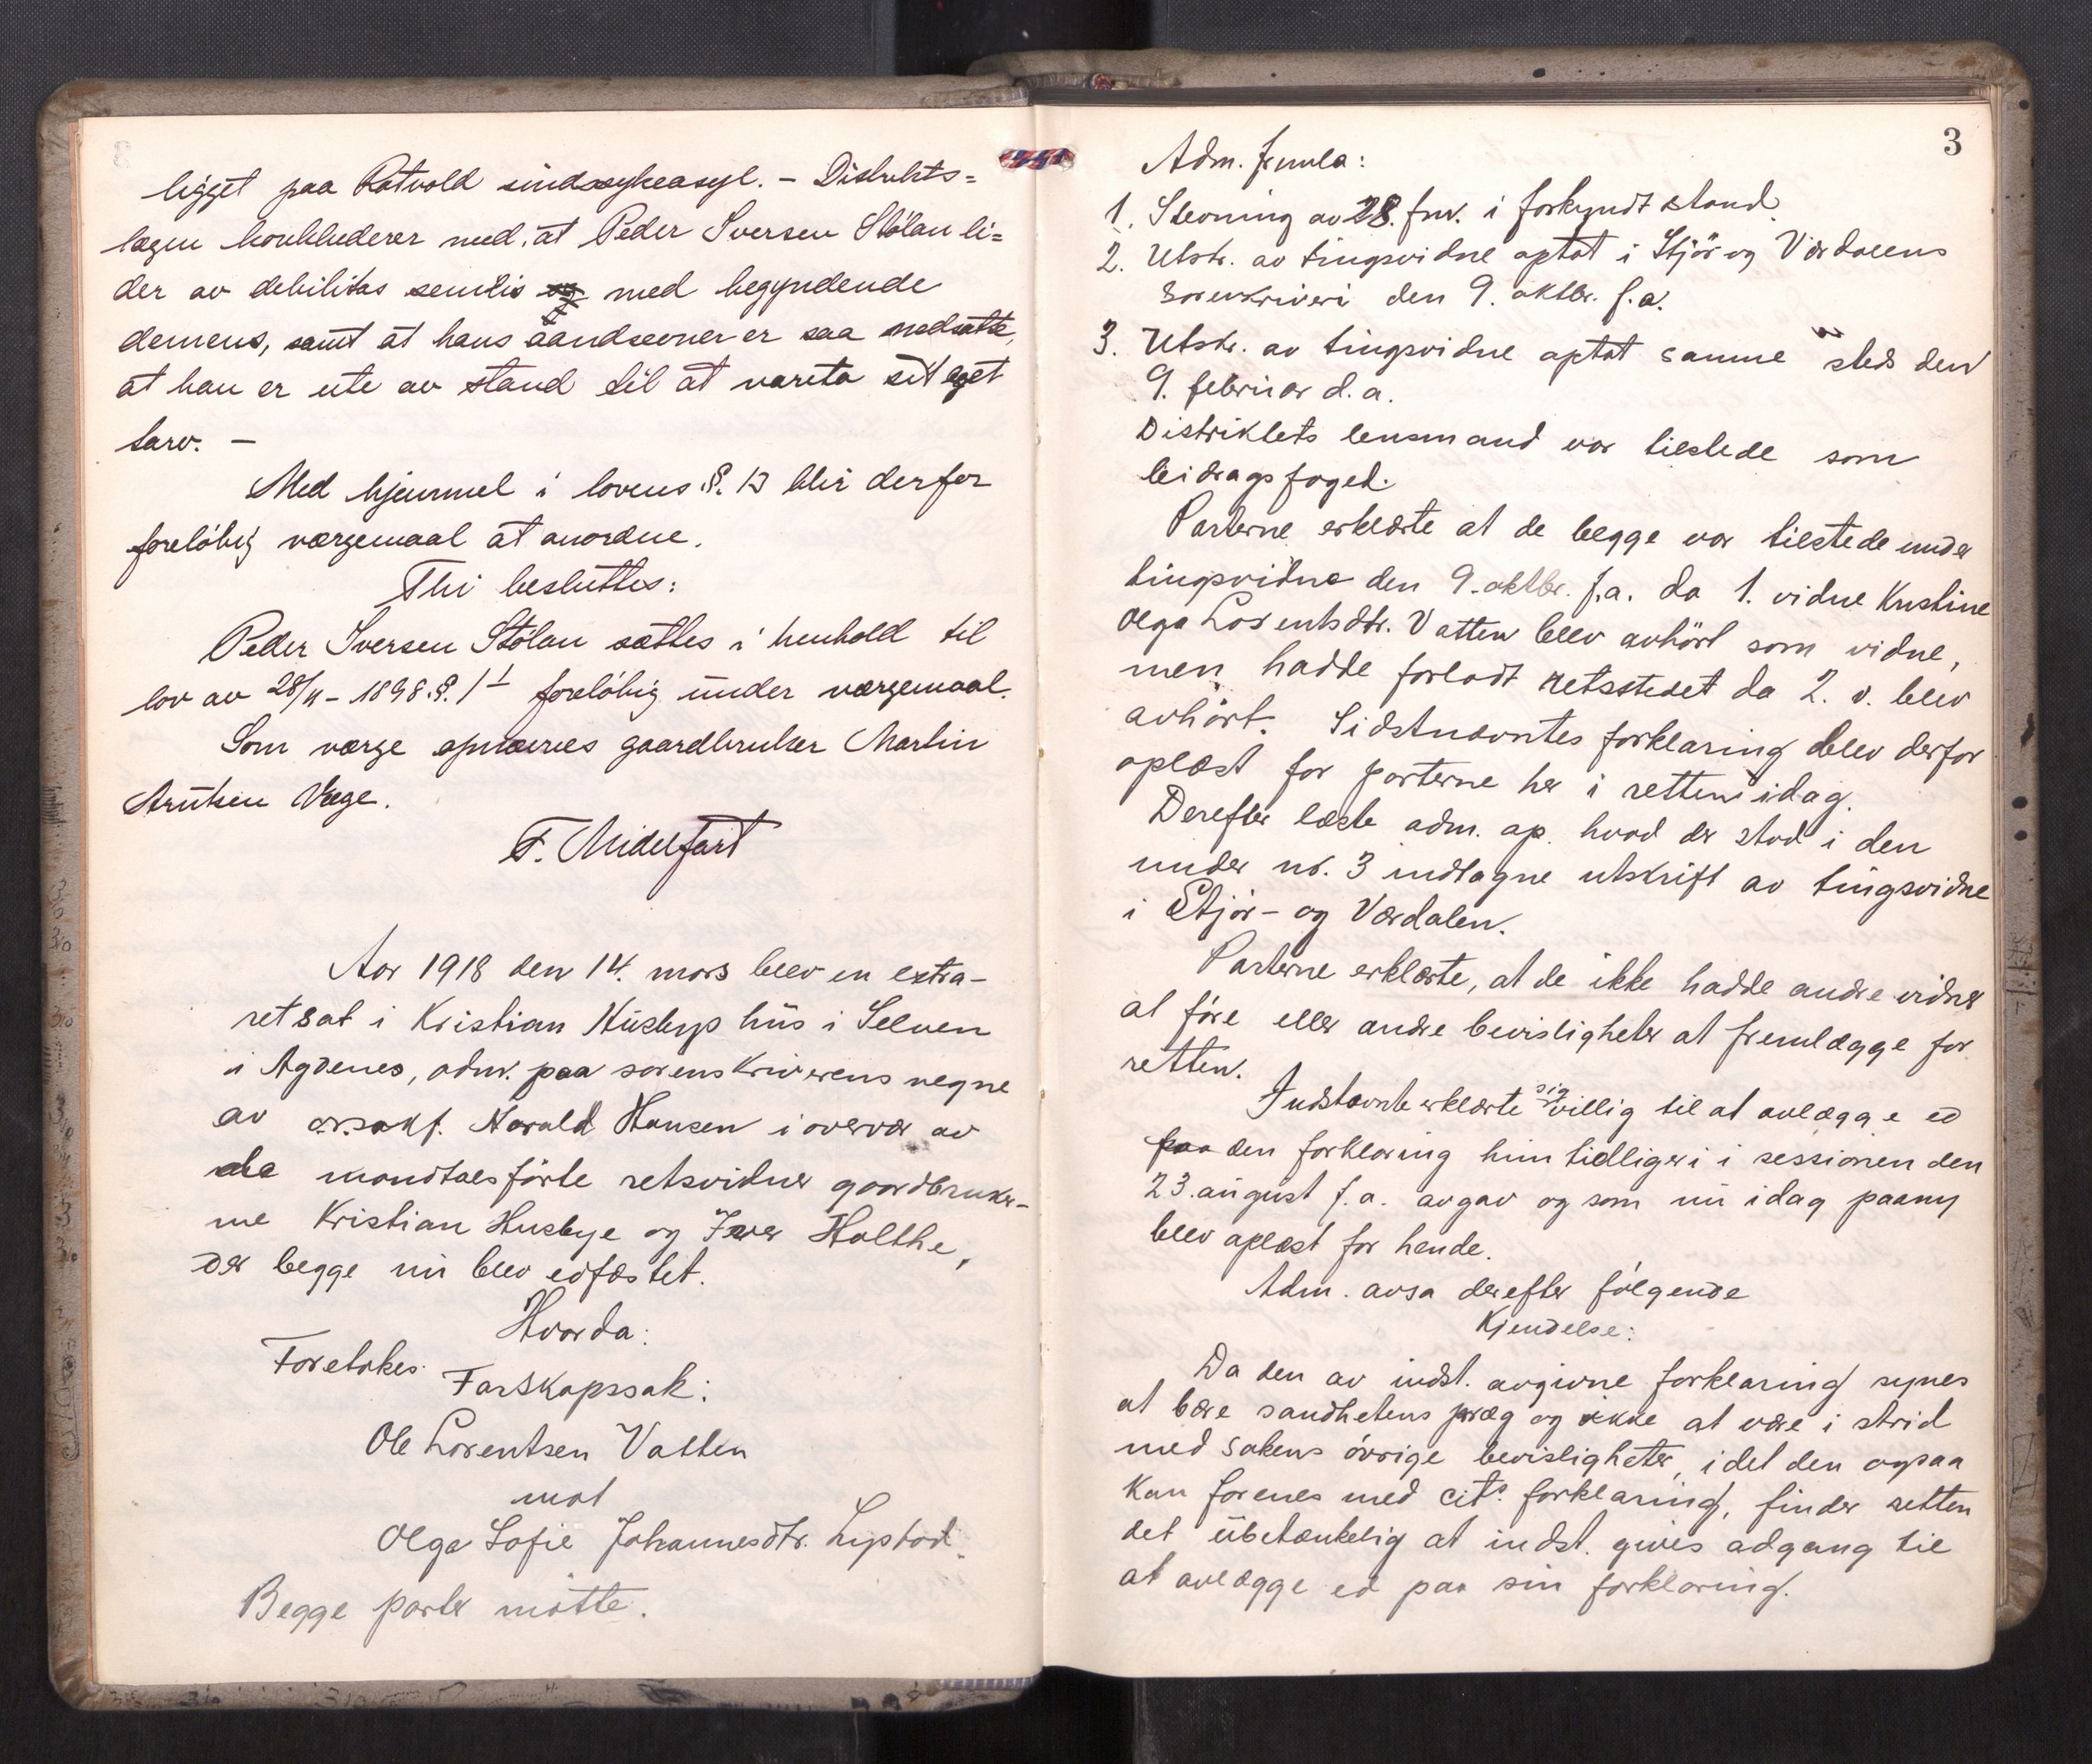 ligget paa Rotvold sindssykeasyl. – Distrikts=
lægen konkluderer med, at Peder Iversen Stölan li=
der av debilitas senilis og med begyndende
demens, samt at hans aandsevner er saa nedsatte,
at han er ute av stand til at vareta sit eget
tarv. –
Med hjemmel i lovens §. 13 blir derfor
foreløbig værgemaal at anordne.
Thi besluttes:
Peder Iversen Stölan sættes i henhold til
lov av 28/11 – 1898 §. 1 foreløbig under værgemaal.
Som værge opnævnes gaardbruker Martin
Arntsen Vage.
F. Midelfart
Aar 1918 den 14. mars blev en extra-
ret sat i Kristian Husbys hus i Selven
i Agdenes, adm. paa sorenskriverens vegne
av o.r.sakf. Harald Hansen i overvær av
de mandtalsförte retsvidner gaardbruker-
ne Kristian Husbye og Iver Holthe,
der begge nu blev edfæstet.
Hvorda:
Foretokes
Farskapssak:
Ole Lorentsen Vatten
mot
Olga Sofie Johannesdtr. Lystad.
Begge parter mötte.
3
Adm. fremla:
1. Stevning av 28. f.m. i forkyndt stand.
2. Utstr. av tingsvidne optat i Stjör og Værdalens
sorenskriveri den 9. oktbr. f.a.
3. Utstr. av tingsvidne optat samme sted den
9. februar d.a.
Distriktets lensmand var tilstede som
bidragsfoged.
Parterne erklærte at de begge var tilstede under
tingsvidne den 9. oktbr. f.a. da 1. vidne Kristine
Olga Lorentsdtr. Vatten blev avhört som vidne,
men hadde forladt retsstedet da 2. v. blev
avhört. Sidstnævntes forklaring blev derfor
oplæst for parterne her i retten idag.
Derefter læste adm. op hvad der stod i den
under nr. 3 indtagne utskrift av tingsvidne
i Stjör- og Værdalen.
Parterne erklærte, at de ikke hadde andre vidner
at före eller andre bevisligheter at fremlægge for
retten.
Indstævnte erklærte sig villig til at avlægge ed
paa den forklaring hun tidligere i sessionen den
23. august f.a. avgav og som nu idag paany
blev oplæst for hende.
Adm. avsa derefter følgende
Kjendelse:
Da den av indst. avgivne forklaring synes
at bære sandhetens præg og ikke at være i strid
med sakens övrige bevisligheter, idet den ogsaa
kan forenes med cits. forklaring, finder retten
det übetænkelig at indst. gives adgang til
at avlægge ed paa sin forklaring.